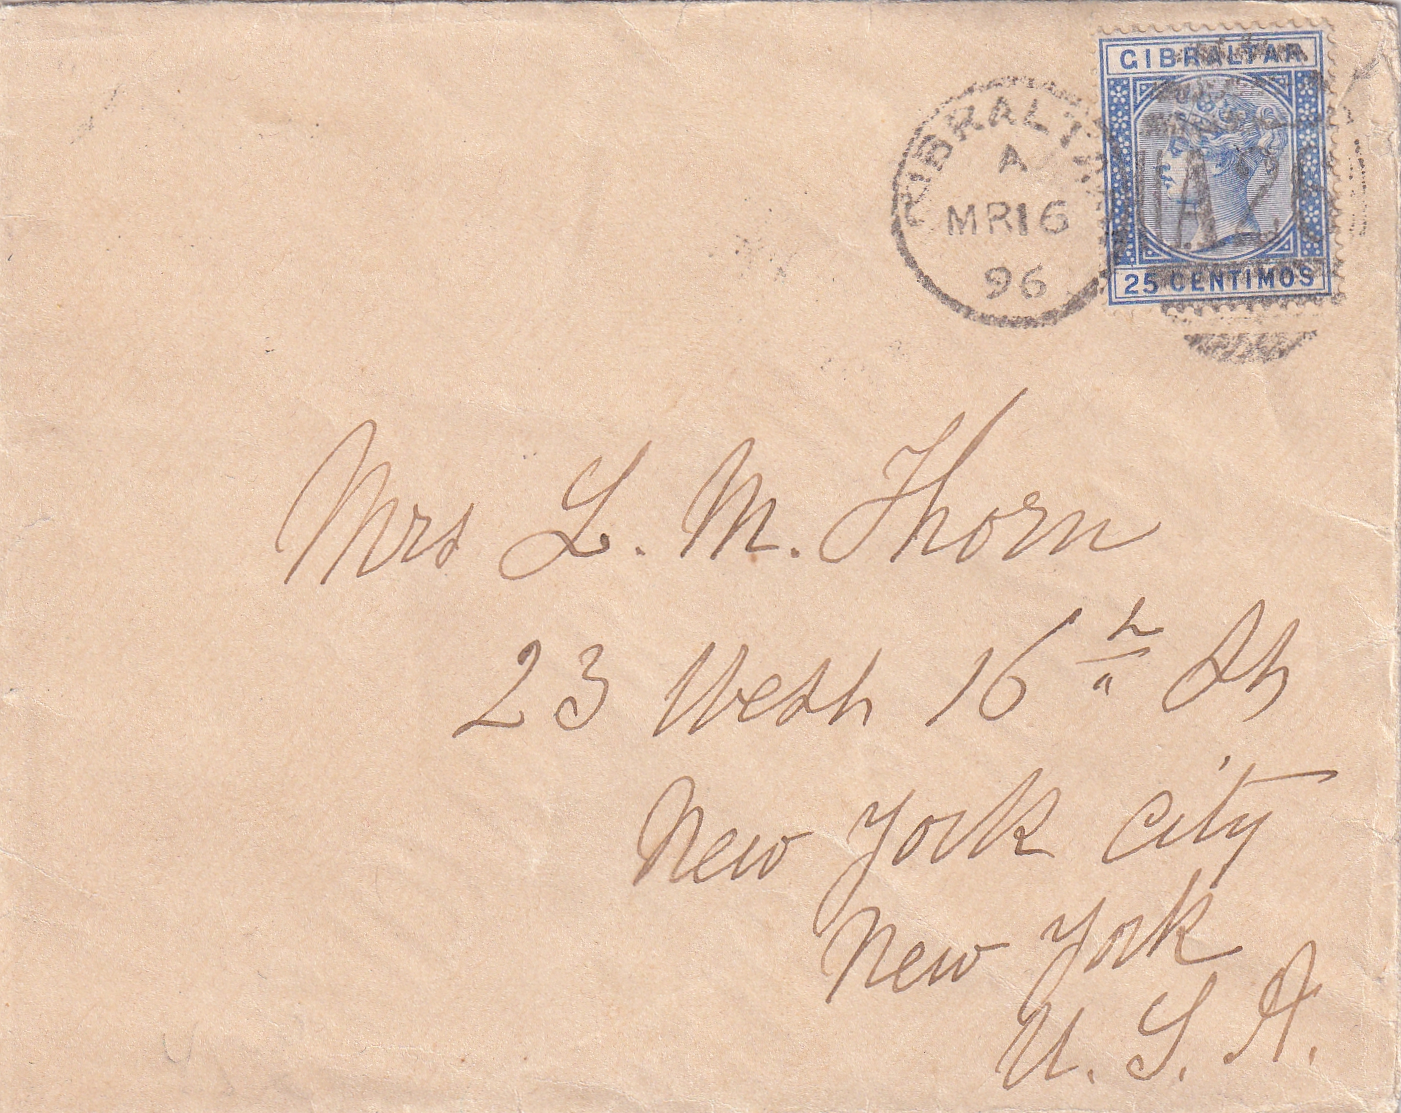 GIBRALTAR
GIBRALTAR
A
MR 16
96
A26
25 CENTIMOS
Mrs L. M. Thorn
23 West 16th St
New York City
New York
U. S. A.